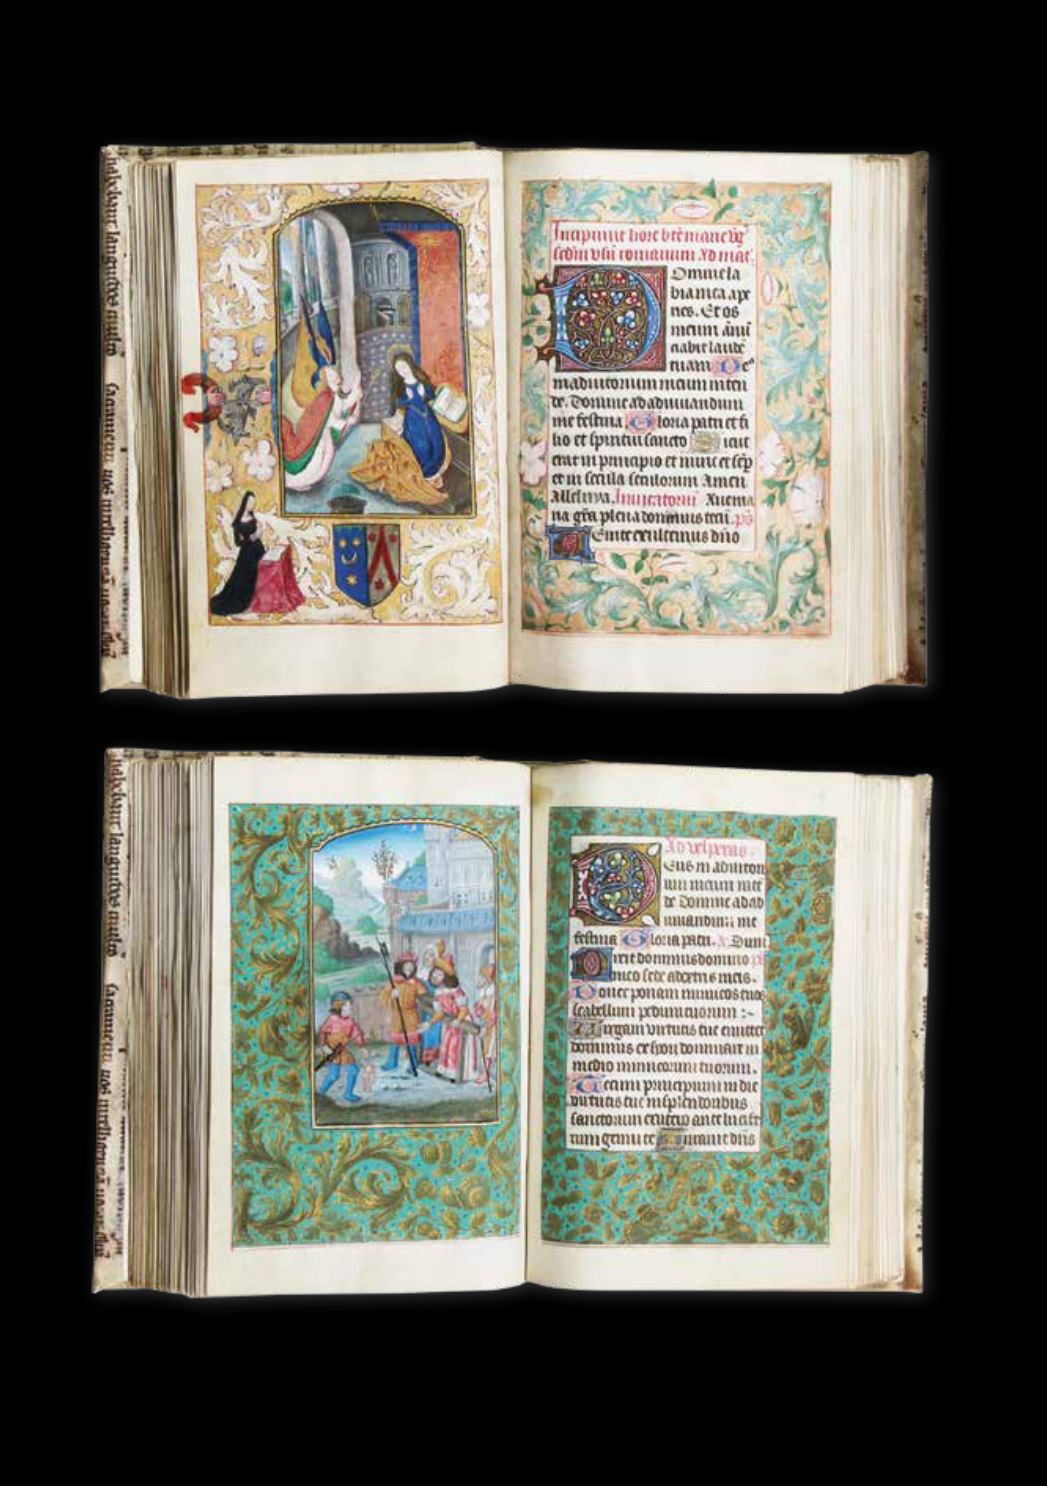 Incipiunt hore bte marie vg
scdm vsu romanum Ad mat
Domine la
bia mea ape
ries. Et os
meum anu
ciabit laude
tuam De
us in adiutorium meum inten
de. Domine ad adiuuandum
me festina Gloria patri et fi
lio et spiritui sancto Sicut
erat in principio et nunc et sep
et in secula seculorum Amen
Alleluya. Inuitatoriu Aue ma
ria gra plena dominus tecu. ps
Uenite exultemus dno
habebant languores
sacramenti nos
Ad vesperas.
Deus in adiutori
um meum inte
de Domine ad ad
iuuandum me
festina Gloria patri. Dum
Dixit dominus domino
meo sede a dextris meis.
Donec ponam inimicos tuos
scabellum pedum tuorum :~
Uirgam virtutis tue emittet
dominus ex syon dominare in
medio inimicorum tuorum.
Tecum principium in die
virtutis tue in splendoribus
sanctorum ex utero ante lucife
rum genui te Iurauit dns
habebant languores
sacramenti nos